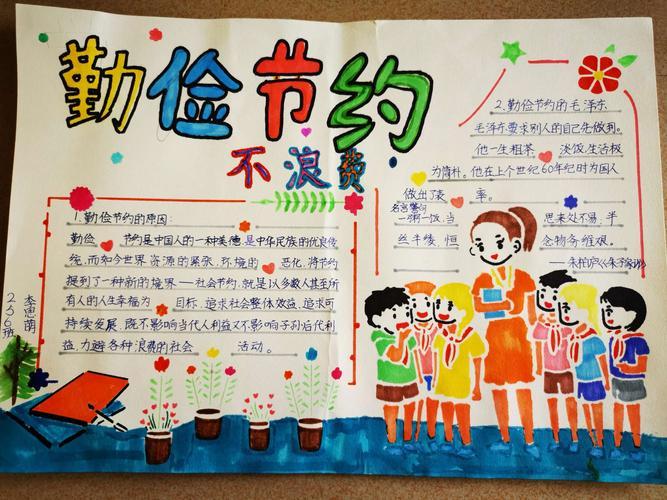 勤俭节约
不浪费
1.勤俭节约的原因:
勤俭 节约是中国人的一种美德,是中华民族的优良传
统,而如今世界资源的紧张,环境的 恶化,将节约
提到了一种新的境界——社会节约,就是以多数人甚至所
有人的人生幸福为 目标,追求社会整体效益,追求可
持续发展,既不影响当代人利益又不影响子孙后代利
益,力避各种浪费的社会 活动。
2.勤俭节约的毛泽东
毛泽东要求别人的自己先做到。
他一生粗茶 淡饭,生活极
为简朴。他在上个世纪60年纪时为国人
做出了表 率。
名言警句
一粥一饭,当 思来处不易,半
丝半缕,恒 念物务维艰。
——朱柏庐《朱子家训》
236班
李思萌